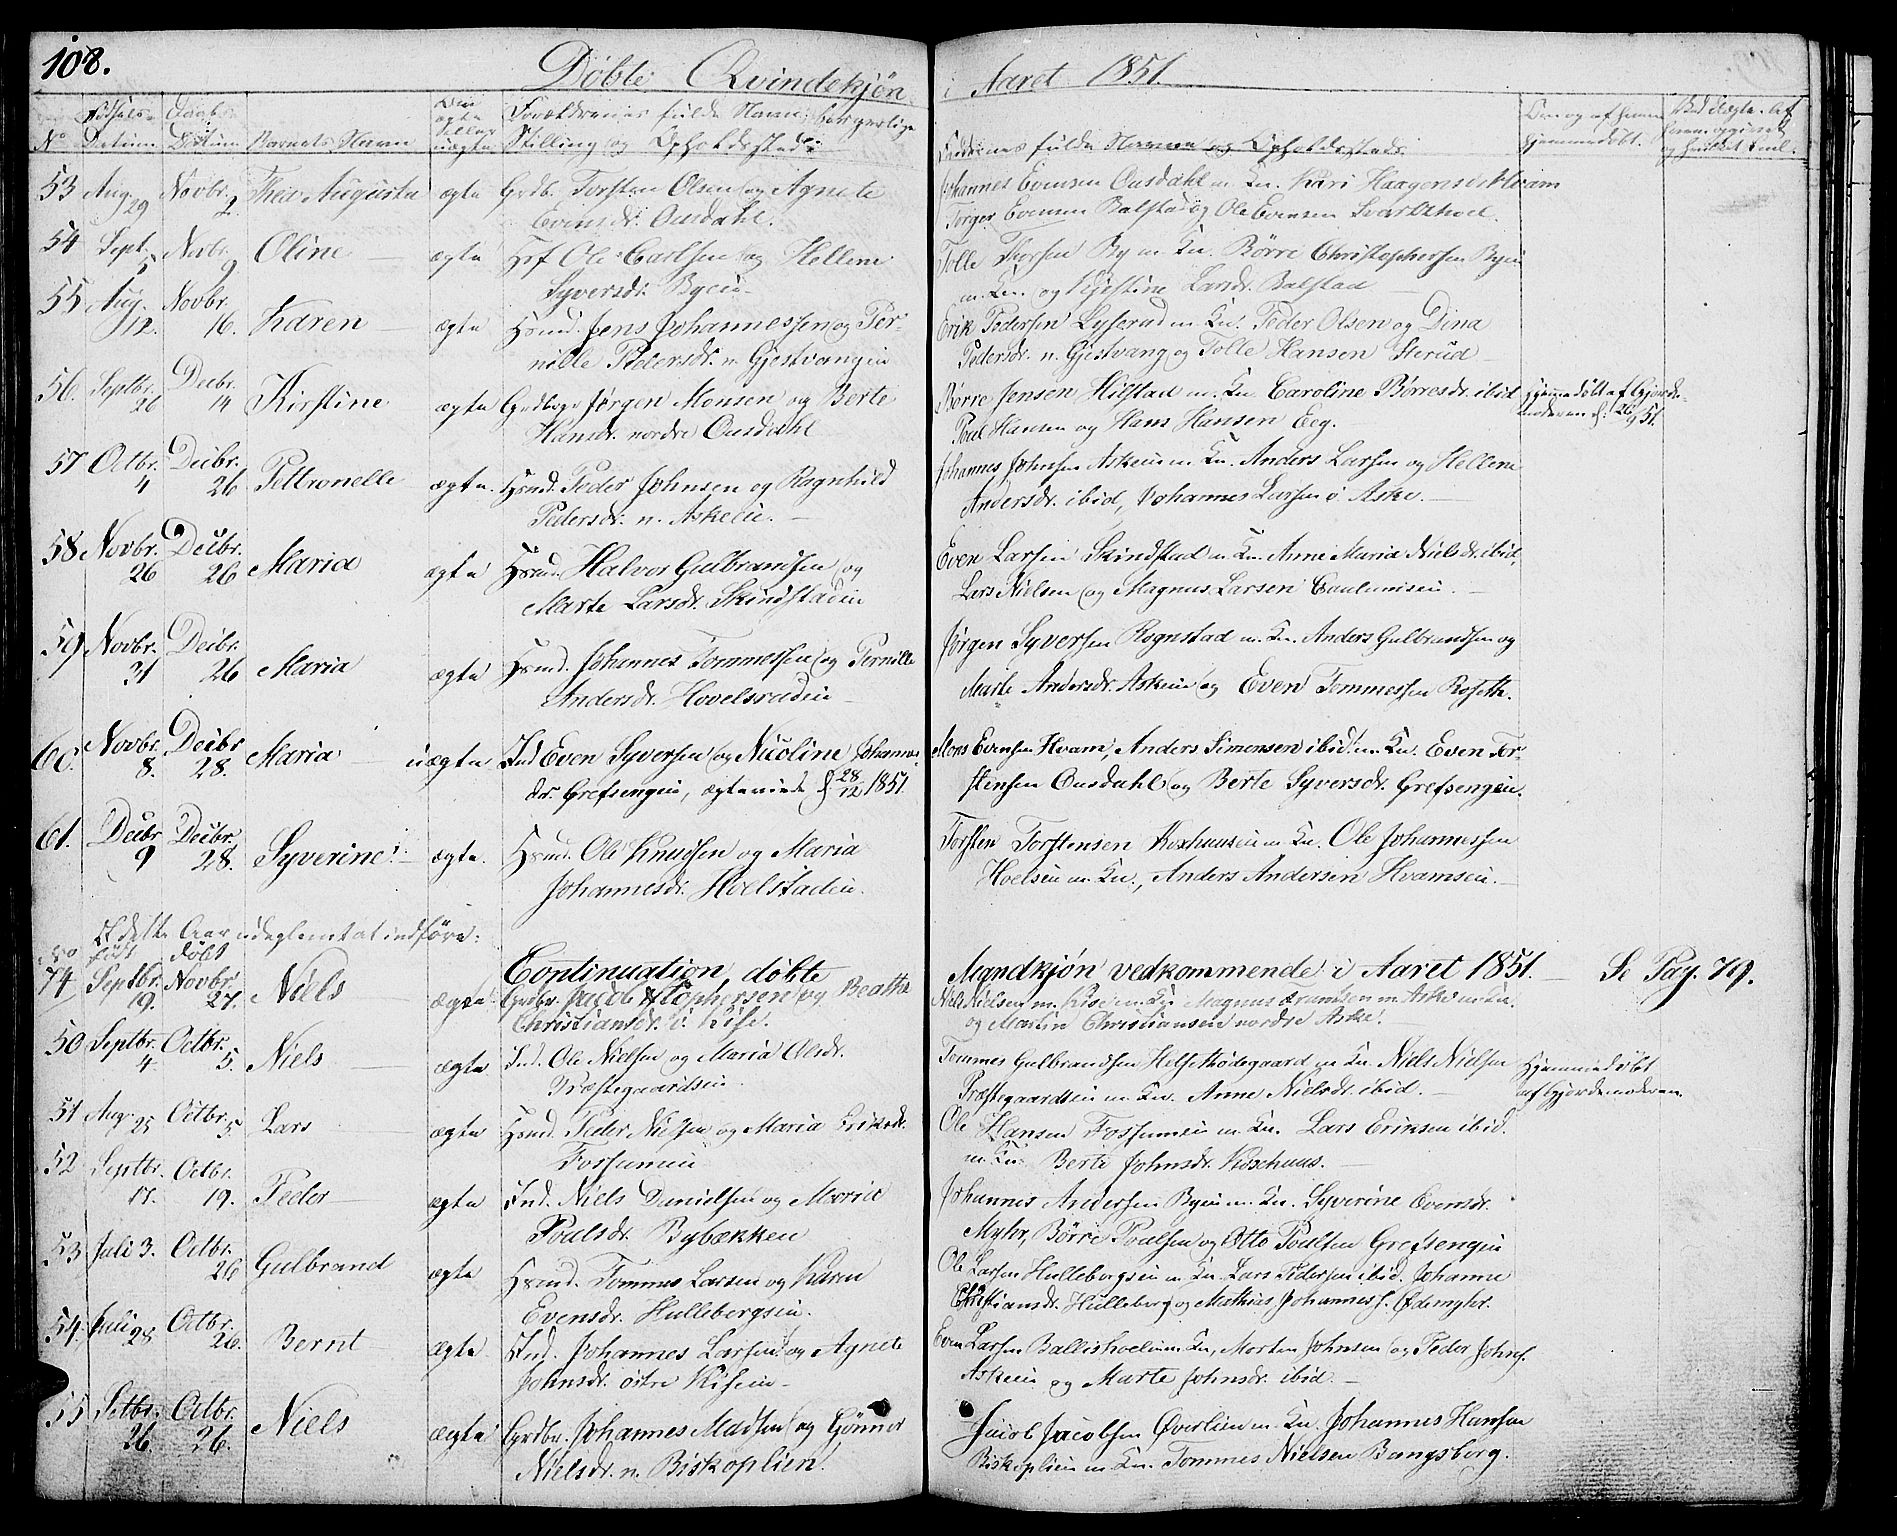 108.
Döbte Qvindekjön
i Aaret 1851.
No
Datum
Datum
Barnets Navn
ægte
eller
uægte
Forældrenes fulde Navne, borgerlige
Stilling og Opholdssted
Faddernes fulde Navne og Opholdssteds
Hjemmedöbt.
53 Aug. 29 Novbr. 2. Thea Augusta ægte Grdb. Torsten Olsen og Agnete
Evensdr. Ousdahl.
Johannes Evensen Ousdahl m. Kn. Kari Haagensd. Hvam
Torger Evensen Balstad og Ole Evensen Svartshoel.
54 Sept. 5 Novbr. 9 Oline ægte Hsf Ole Carlsen og Hellene
Syversdr. Byeie
Tolle Thorsen By m. Kn. Börre Christophersen Byeie
m. Kn. og Kjestine Larsdr. Balstad
55 Aug. 12. Novbr. 16. Karen ægte Hsmd. Jens Johannessen og Per-
nille Pedersdr. n. Gjestvangeie
Erik Pedersen Lyserud m. Kn. Peder Olsen og Dina
Pedersdr. n. Gjestvang og Tolle Hansen Sterud
56. Septbr. 26 Decbr. 14 Kirstine ægte Grdbr. Jörgen Monsen og Berte
Hansdr. nordre Ousdahl
Börre Jensen Hilstad m. Kn. Caroline Börresdr. ibid
Poul Hansen og Hans Hansen Eeg.
Hjemmedöbt af Gjorde-
moderen d. 26/9 51.
57 Octbr. 4 Decbr. 26 Pettronelle ægte. Hsmd. Peder Johnsen og Ragnhild
Pedersdr. n. Askeie.
Johannes Johnsen Askeie m. Kn. Anders Larsen og Hellene
Andersdr. ibid, Johannes Larsen ö Aske.
58 Novbr. 26 Decbr. 26 Maria ægte Hsmd. Halvor Gulbrandsen og
Marte Larsdr. Skindstadeie
Even Larsen Skindstad m. Kn. Anne Maria Nielsdr. ibid,
Lars Nielsen og Magnus Larsen
59 Novbr. 31 Decbr. 26 Maria ægte Hsmd. Johannes Tommessen og Pernille
Andersdr. Hovelsrudeie
Jörgen Syversen Rognstad m. Kn. Anders Gulbrandsen og
Marte Andersdr. Askeie og Even Tommessen Roseth.
60. Novbr. 8. Decbr 28. Maria uægte Ind Even Syversen og Nicoline Johannes-
dr. Grefsengeie, ægteviede d 28/12 1851.
Mons Evensen Hvam, Anders Simensen ibid m. Kn. Even Tor-
stensen Ousdahl og Berte Syversdr. Grefsengeie.
61. Decbr 9 Decbr. 28. Syverine ægte. Hsmd. Ole Knudsen og Maria
Johannesdr. Hoelstadeie.
Torsten Torstensen Koxhuuseie m. Kn. Ole Johannessen
Hoelseie m. Kn., Anders Andersen Hvamseie.
Et dette Aar udeglemt at indföre:
No födt döbt
Continuation, döbte Mandkjön vedkommende i Aaret 1851. Se Pag. 79.
74 Septbr. 19. Novbr. 27. Niels ægte Grdbr. Jacob Xstophersen og Beathe
Christiansdr. i Kise.
Niels Nielsen m. Kise m. Kn. Magnus Frantsen m. Aske m. Kn.
og Martin Christiansen nordre Aske.
50 Septbr. 4 Octbr. 5. Niels ægte Ind. Ole Nielsen og Maria Olsdr.
Præstegaardseie
Tommes Gulbrandsen Helsethödegaard m. Kn. Niels Nielsen
Præstegaardseie m. Kn. Anne Nielsdr. ibid.
Hjemmedöbt
af Gjordemoderen
51 Aug. 25 Octbr. 5. Lars ægte Hsmd. Peder Nielsen og Maria Eriksdr.
Fossumeie
Ole Hansen Fossumeie m. Kn. Lars Eriksen ibid.
m. Kn. Berte Johnsdr. Koxhuus.
52 Septbr. 17. Octbr. 19. Peder ægte Ind. Niels Danielsen og Maria
Poulsdr. Bybækken
Johannes Andersen Byeie m. Kn. Syverine Evensdr.
Myhr, Börre Poulsen og Otto Poulsen Grefsengeie
53 Juli 3. Octbr. 26 Gulbrand ægte Hsmd. Tommes Larsen og Karen
Evensdr. Hullebergseie.
Ole Larsen Hullebergseie m. Kn. Lars Pedersen ibid. Johanne
Christiansdr. Hulleberg og Mathias Johanness. Ödemyhr.
54 Juli 28 Octbr. 26. Bernt ægte Ind. Johannes Larsen og Agnete
Johnsdr. östre Kiseie
Even Larsen Ballishoel m. Kn, Morten Johnsen og Peder Johns.
Askeie og Marte Johnsdr. ibid
55 Setbr. 26 Octbr. 26. Niels ægte Grdbr. Johannes Madsen og Gönner
Nielsdr. n. Biskoplien.
Jacob Jacobsen Överlien m. Kn. Johannes Hansen
Biskoplien m. Kn. Tommes Nielsen Bangsberg.